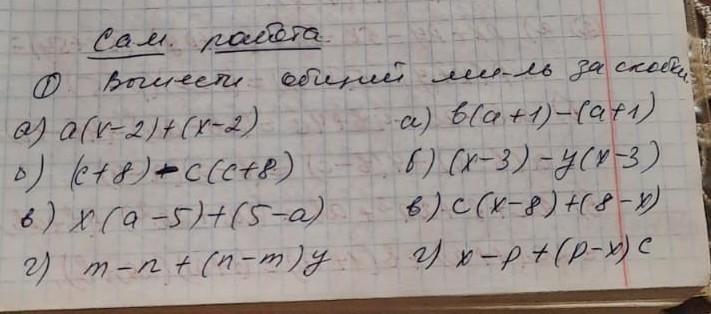 Сам. работа.
① Вынести общий мн-ль за скобки
а) a(x-2)+(x-2) а) b(a+1)-(a+1)
б) (c+8)-c(c+8) б) (x-3)-y(x-3)
в) x(a-5)+(5-a) в) c(x-8)+(8-x)
г) m-n+(n-m)y г) x-p+(p-x)c